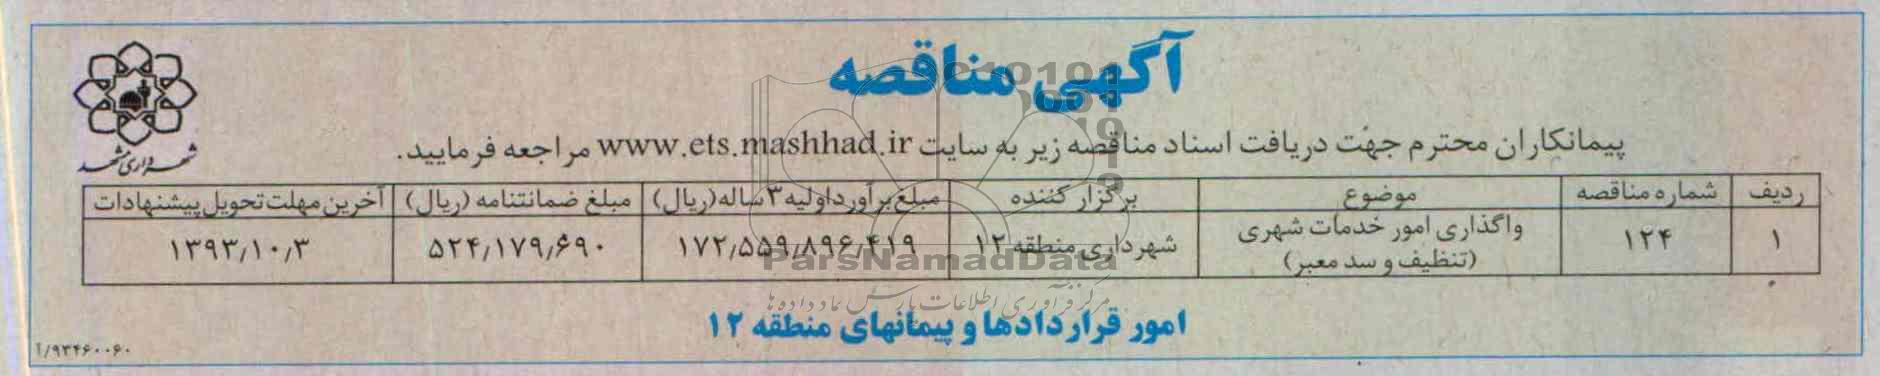 آگهی مناقصه
شهرداری مشهد
پیمانکاران محترم جهت دریافت اسناد مناقصه زیر به سایت www.ets.mashhad.ir مراجعه فرمایید.
ردیف شماره مناقصه موضوع برگزار کننده مبلغ برآورد اولیه ۳ ساله (ریال) مبلغ ضمانتنامه (ریال) آخرین مهلت تحویل پیشنهادات
۱ ۱۲۴ واگذاری امور خدمات شهری شهرداری منطقه ۱۲ ۱۷۲٫۵۵۹٫۸۹۶٫۴۱۹ ۵۲۴٫۱۷۹٫۶۹۰ ۱۳۹۳٫۱۰٫۳
(تنظیف و سد معبر)
ParsNamadData
مرکز فرآوری اطلاعات پارس نماد داده ها
امور قراردادها و پیمانهای منطقه ۱۲
۹۳۴۶۰۰۶۰/آ